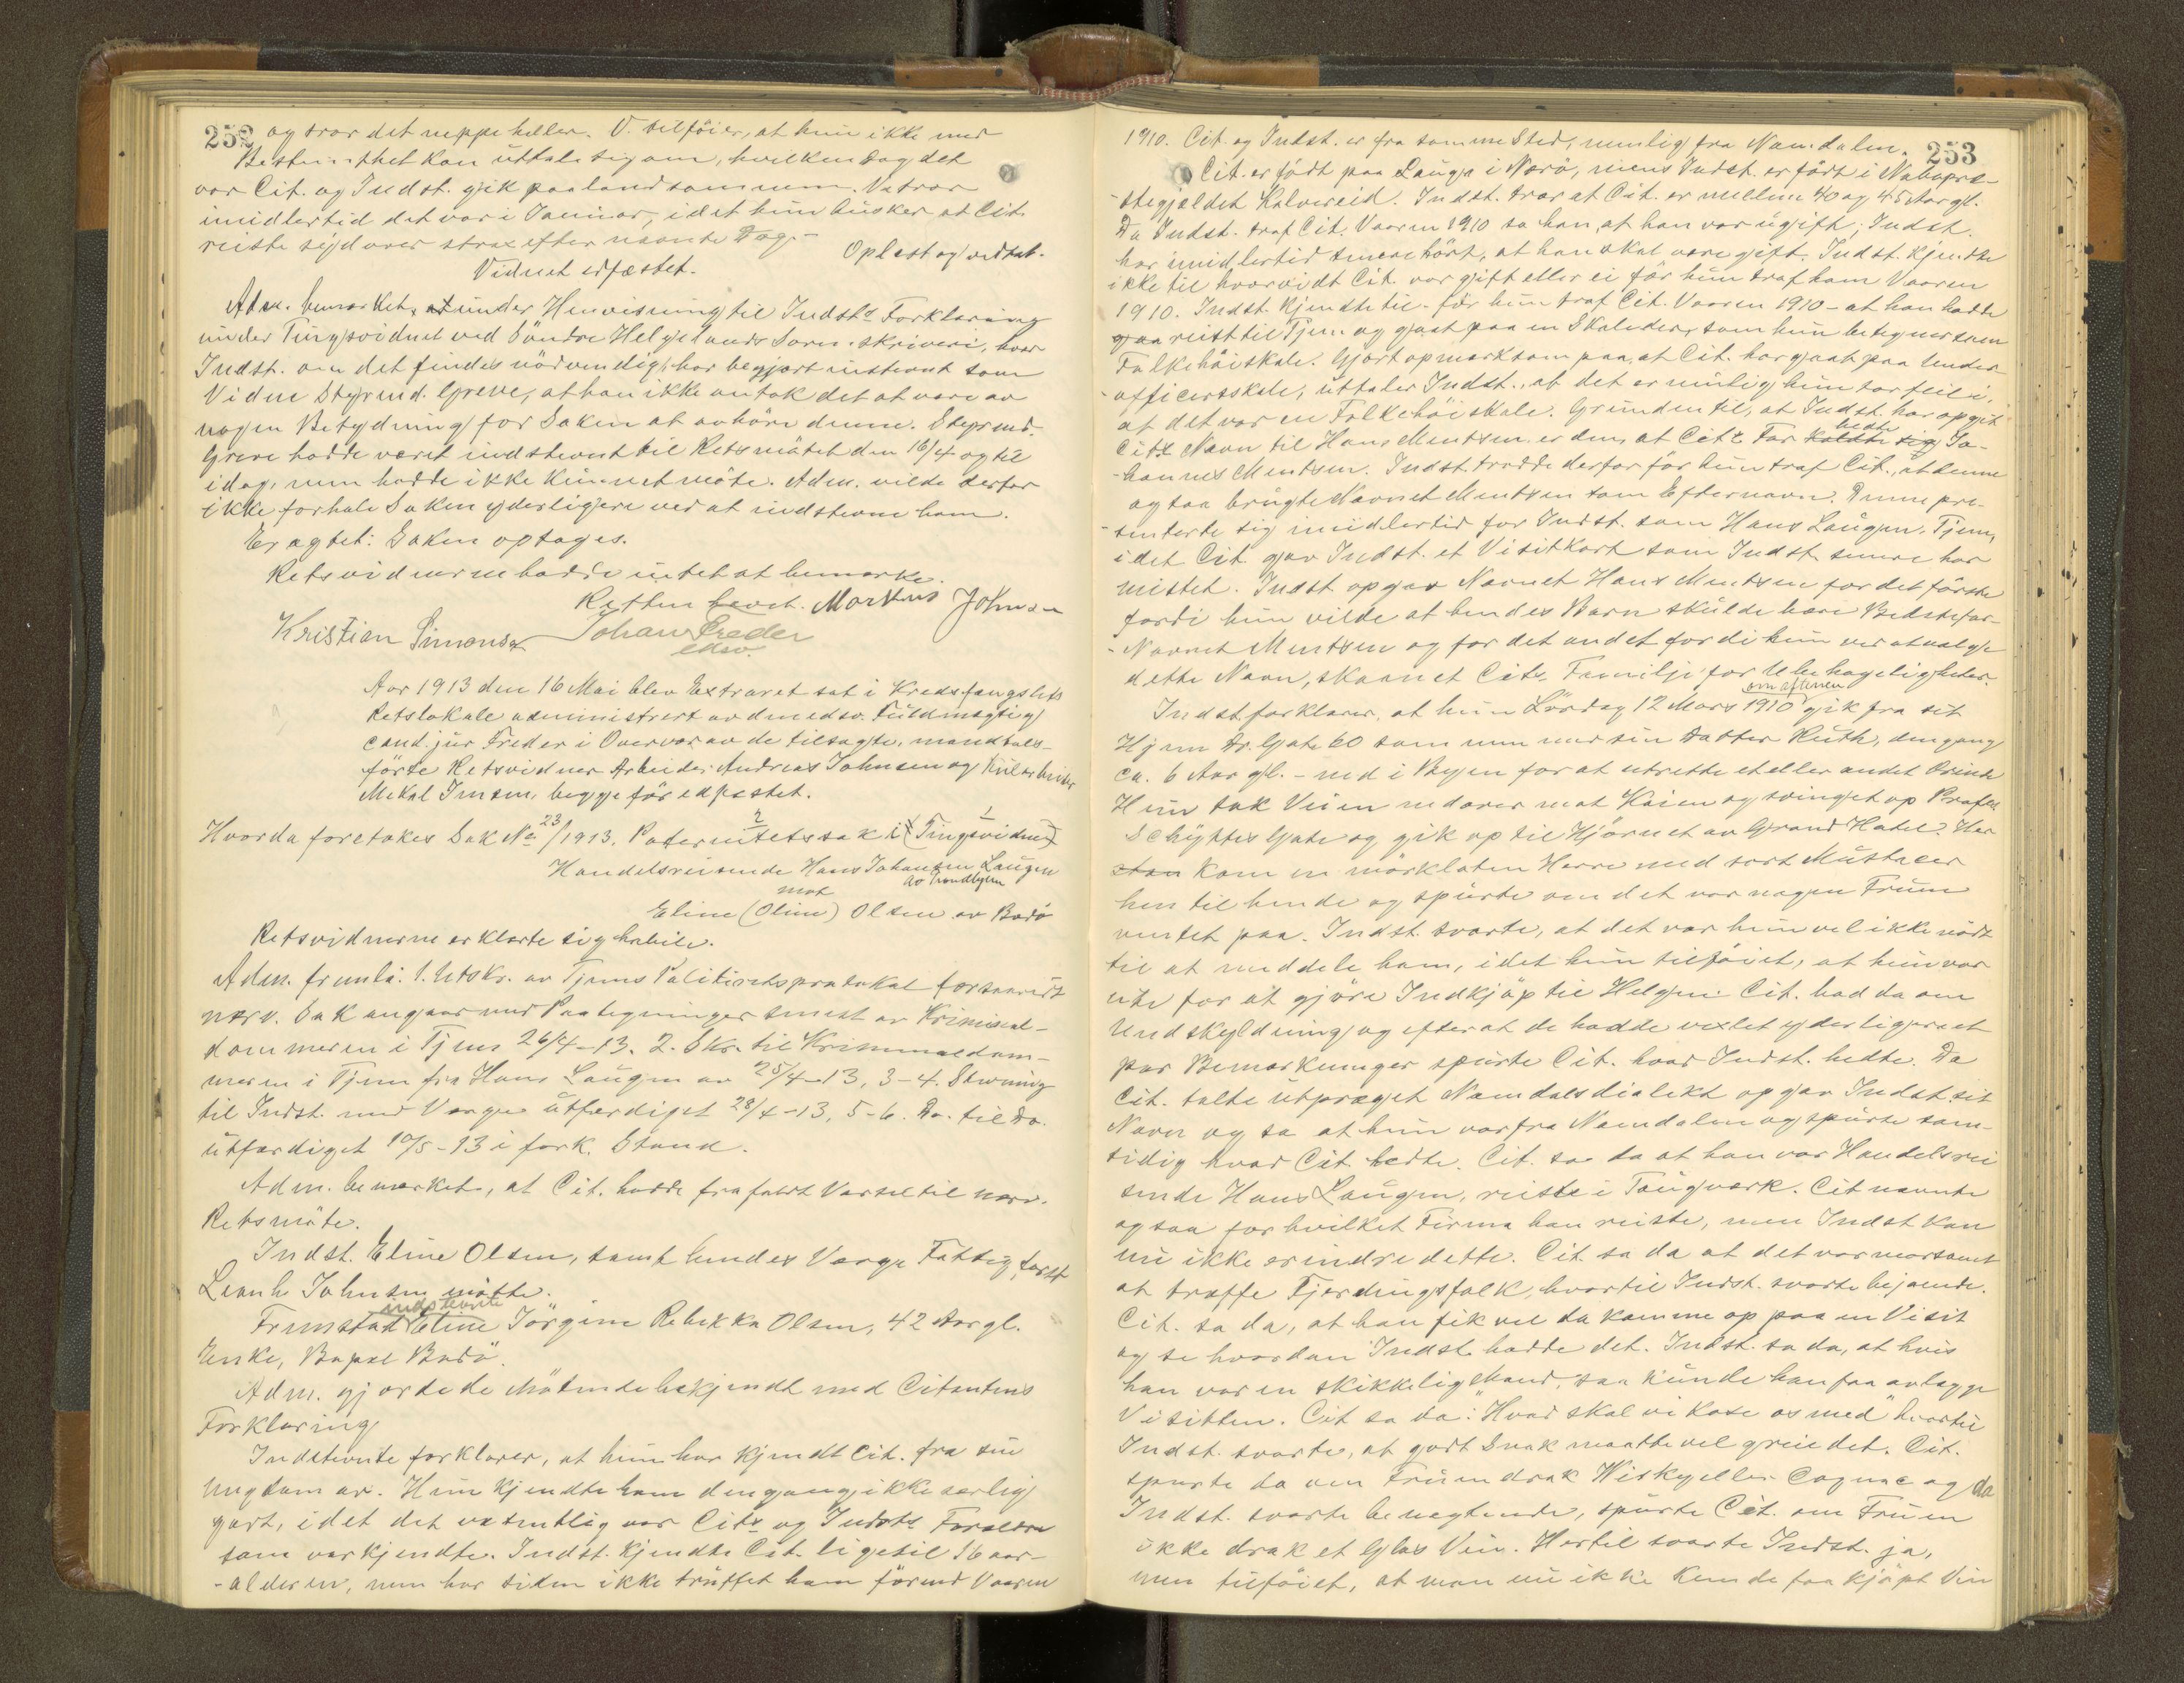 252
og tror det neppe heller. V. tilföier, at hun ikke med
Bestemthet kan uttale sig om, hvilken Dag det
var Cit. og Indst. gik paa land sammen. V. tror
imidlertid det var i Januar, idet hun husker at Cit.
reiste sydover strax efter nævnte Dag. –
Oplæst og vedtat.
Vidnet edfæstet.
Adm. bemærket, at under Henvisning til Indsts Forklaring
under Tingsvidnet ved Söndre Helgelands Sorenskriveri, hvor
Indst. om det findes nödvendig, har begjært instevnt som
Vidne Styrmd. Greve, at han ikke antok det at være av
nogen Betydning for Saken at avhöre denne. Styrmd.
Greve hadde været indstevnt til Retsmötet den 16/4 og til
idag, men hadde ikke kunnet möte. Adm. vilde derfor
ikke forhale Saken yderligere ved at indstevne ham.
Eragtet: Saken optages.
Retsvidnerne hadde intet at bemærke.
Retten hævet. Martinus Johnsen
Kristian Simonsen Johan Freder
edsv.
Aar 1913 den 16 Mai blev Extraret sat i Kredsfængslets
Retslokale administrert av den edsv. Fuldmægtig
cand. jur Freder i Overvær av de tilsagte, mandtals-
förte Retsvidner Arbeider Andreas Johnsen og
Mekal Jensen, begge för edfæstet.
Hvorda foretokes Sak No 23/1913. Paternitetssak (Tingsvidne)
Handelsreisende Hans Johansen Laugen
av Trondhjem
mot
Eline (Oline) Olsen av Bodö
Retsvidnerne erklærte sig habile.
Adm. fremla: 1. Utskr. av Tjems Politiretsprotokol forsaavidt
nærv. Sak angaar med Paategninger senest av Kriminal-
dommeren i Tjem 26/4-13. 2. Skr. til Kriminaldom-
meren i Tjem fra Hans Laugen av 25/4-13, 3-4. Stevning
til Indst. med Verge utfærdiget 28/4-13, 5-6. Do. til Do.
utfærdiget 10/5-13 i fork. Stand.
Adm. bemærket, at Cit. hadde frafaldt Varsel til nærv.
Retsmöte.
Indst. Eline Olsen, samt hendes Verge Fattigforst
Leonh. Johnsen mötte.
Fremstod indstevnte Eline Jörgine Rebekka Olsen, 42 Aar gl.
Enke, Bopæl Bodö.
Adm. gjorde de Mötende bekjendt med Citantens
Forklaring
Indstevnte forklarer, at hun har kjendt Cit. fra sin
Ungdom av. Hun kjendte ham dengang ikke særlig
godt, idet det væsentlig var Cits og Indsts Forældre
som var kjendte. Indst. kjendte Cit. ligetil 16 aar-
-alderen, men har siden ikke truffet ham förend Vaaren
253
1910. Cit. og Indst. er fra samme Sted, nemlig fra Namdalen.
Cit. er födt paa Lauga i Nærö, mens Indst. er födt i Nabopre-
-stegjeldet Kolvereid. Indst. tror at Cit. er mellem 40 og 45 Aar gl.
Da Indst. traf Cit. Vaaren 1910 sa han, at han var ugift; Indst.
har imidlertid senere hört, at han skal være gift. Indst. kjendte
ikke til hvorvidt Cit. var gift eller ei för hun traf ham Vaaren
1910. Indst. kjendte til – för hun traf Cit. Vaaren 1910 – at han hadde
gaa reist til Tjem og gaat paa en Skole der, som hun betegner som
Folkehöiskole. Gjort opmærksom paa, at Cit. har gaat paa Under-
-officersskole, uttaler Indst., at det er mulig hun tar feil i,
at det var en Folkehöiskole. Grunden til, at Indst. har opgit
Cits Navn til Hans Mentsen er den, at Cits Far hedte kaldte sig Jo-
-hannes Mentsen. Indst. trodde derfor för hun traf Cit., at denne
ogsaa brugte Navnet Mentsen som Efternavn. Denne pre-
-senterte sig imidlertid for Indst. som Hans Laugen, Tjem,
idet Cit. gav Indst. et Visitkort som Indst. senere har
mistet. Indst. opgav Navnet Hans Mentsen for det förste
fordi hun vilde at hendes Barn skulde bære Bedstefar-
-Navnet Mentsen og for det andet fordi hun ved at vælge
dette Navn, skaanet Cits. Familje for Ubehageligheter.
Indst. forklarer, at hun Lördag 12 Mars 1910 om aftenen gik fra sit
Hjem Dr. Gate 60 sammen med sin Datter Ruth, dengang
ca. 6 Aar gl. – ned i Byen for at utrette et eller andet Ærinde
Hun tok Veien nedover mot Kaien og svinget op Prof.
Schyttes Gate og gik op til Hjörnet av Grand Hotel. Her
kom en mörkladen Herre med sort Mustacer
hen til hende og spurte om det var nogen Fruen
ventet paa. Indst. svarte, at det var hun vel ikke nödt
til at meddele ham, idet hun tilföiet, at hun var
ute for at gjöre Indkjöp til Helgen. Cit. bad da om
Undskyldning og efterat de hadde vexlet yderligere et
par Bemærkninger spurte Cit. hvad Indst. hedte. Da
Cit. talte utpræget Namdalsdialekt opgav Indst. sit
Navn og sa at hun var fra Namdalen og spurte sam-
tidig hvad Cit. hedte. Cit. sa da at han var Handelsrei
sende Hans Laugen, reiste i Taugverk. Cit nævnte
ogsaa for hvilket Firma han reiste, men Indst kan
nu ikke erindre dette. Cit. sa da at det var morsomt
at træffe Fjerdingsfolk, hvortil Indst. svarte bejaende.
Cit. sa da, at han fik vel da komme op paa en Visit
og se hvordan Indst. hadde det. Indst. sa da, at hvis
han var en skikkelig Mand, saa kunde han faa avlægge
Visitten. Cit sa da: "Hvad skal vi kose os med" hvortil
Indst. svarte, at godt Snak maatte vel greie det. Cit.
spurte da om Fruen drak Wisky eller Cognac og da
Indst. svarte benegtende, spurte Cit. om Fruen
ikke drak et Glas Vin. Hertil svarte Indst. ja,
men tilföiet, at man nu ikke kunde faa kjöpt Vin